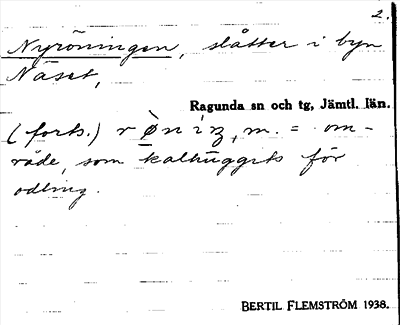 2.
Nyröningen, slåtter i byn
Näset,
Ragunda sn och tg, Jämtl. län.
(forts.) m. = om-
råde, som kalhuggits för
odling.
BERTIL FLEMSTRÖM 1938.